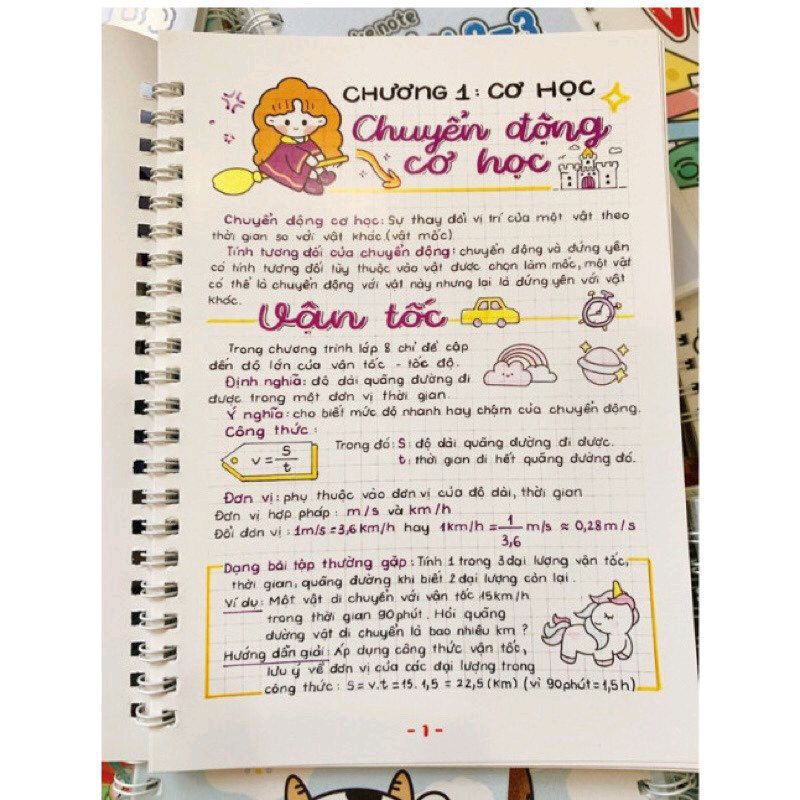 CHƯƠNG 1: CƠ HỌC
Chuyển động
cơ học
Chuyển động cơ học: Sự thay đổi vị trí của một vật theo
thời gian so với vật khác.(vật mốc)
Tính tương đối của chuyển động: chuyển động và đứng yên
có tính tương đối tùy thuộc vào vật được chọn làm mốc, một vật
có thể là chuyển động với vật này nhưng lại là đứng yên với vật
khác.
Vận tốc
Trong chương trình lớp 8 chỉ đề cập
đến độ lớn của vận tốc - tốc độ.
Định nghĩa: độ dài quãng đường đi
được trong một đơn vị thời gian.
Ý nghĩa: cho biết mức độ nhanh hay chậm của chuyển động.
Công thức:
v = S/t
Trong đó: S: độ dài quãng đường đi được.
t: thời gian đi hết quãng đường đó.
Đơn vị: phụ thuộc vào đơn vị của độ dài, thời gian
Đơn vị hợp pháp: m/s và km/h
Đổi đơn vị: 1m/s = 3,6 km/h hay 1km/h = 1/3,6 m/s ≈ 0,28 m/s
Dạng bài tập thường gặp: Tính 1 trong 3 đại lượng vận tốc,
thời gian, quãng đường khi biết 2 đại lượng còn lại.
Ví dụ: Một vật di chuyển với vận tốc 15km/h
trong thời gian 90 phút. Hỏi quãng
đường vật di chuyển là bao nhiêu km?
Hướng dẫn giải: Áp dụng công thức vận tốc,
lưu ý về đơn vị của các đại lượng trong
công thức: S = v.t = 15. 1,5 = 22,5 (km) (vì 90 phút = 1,5h)
- 1 -